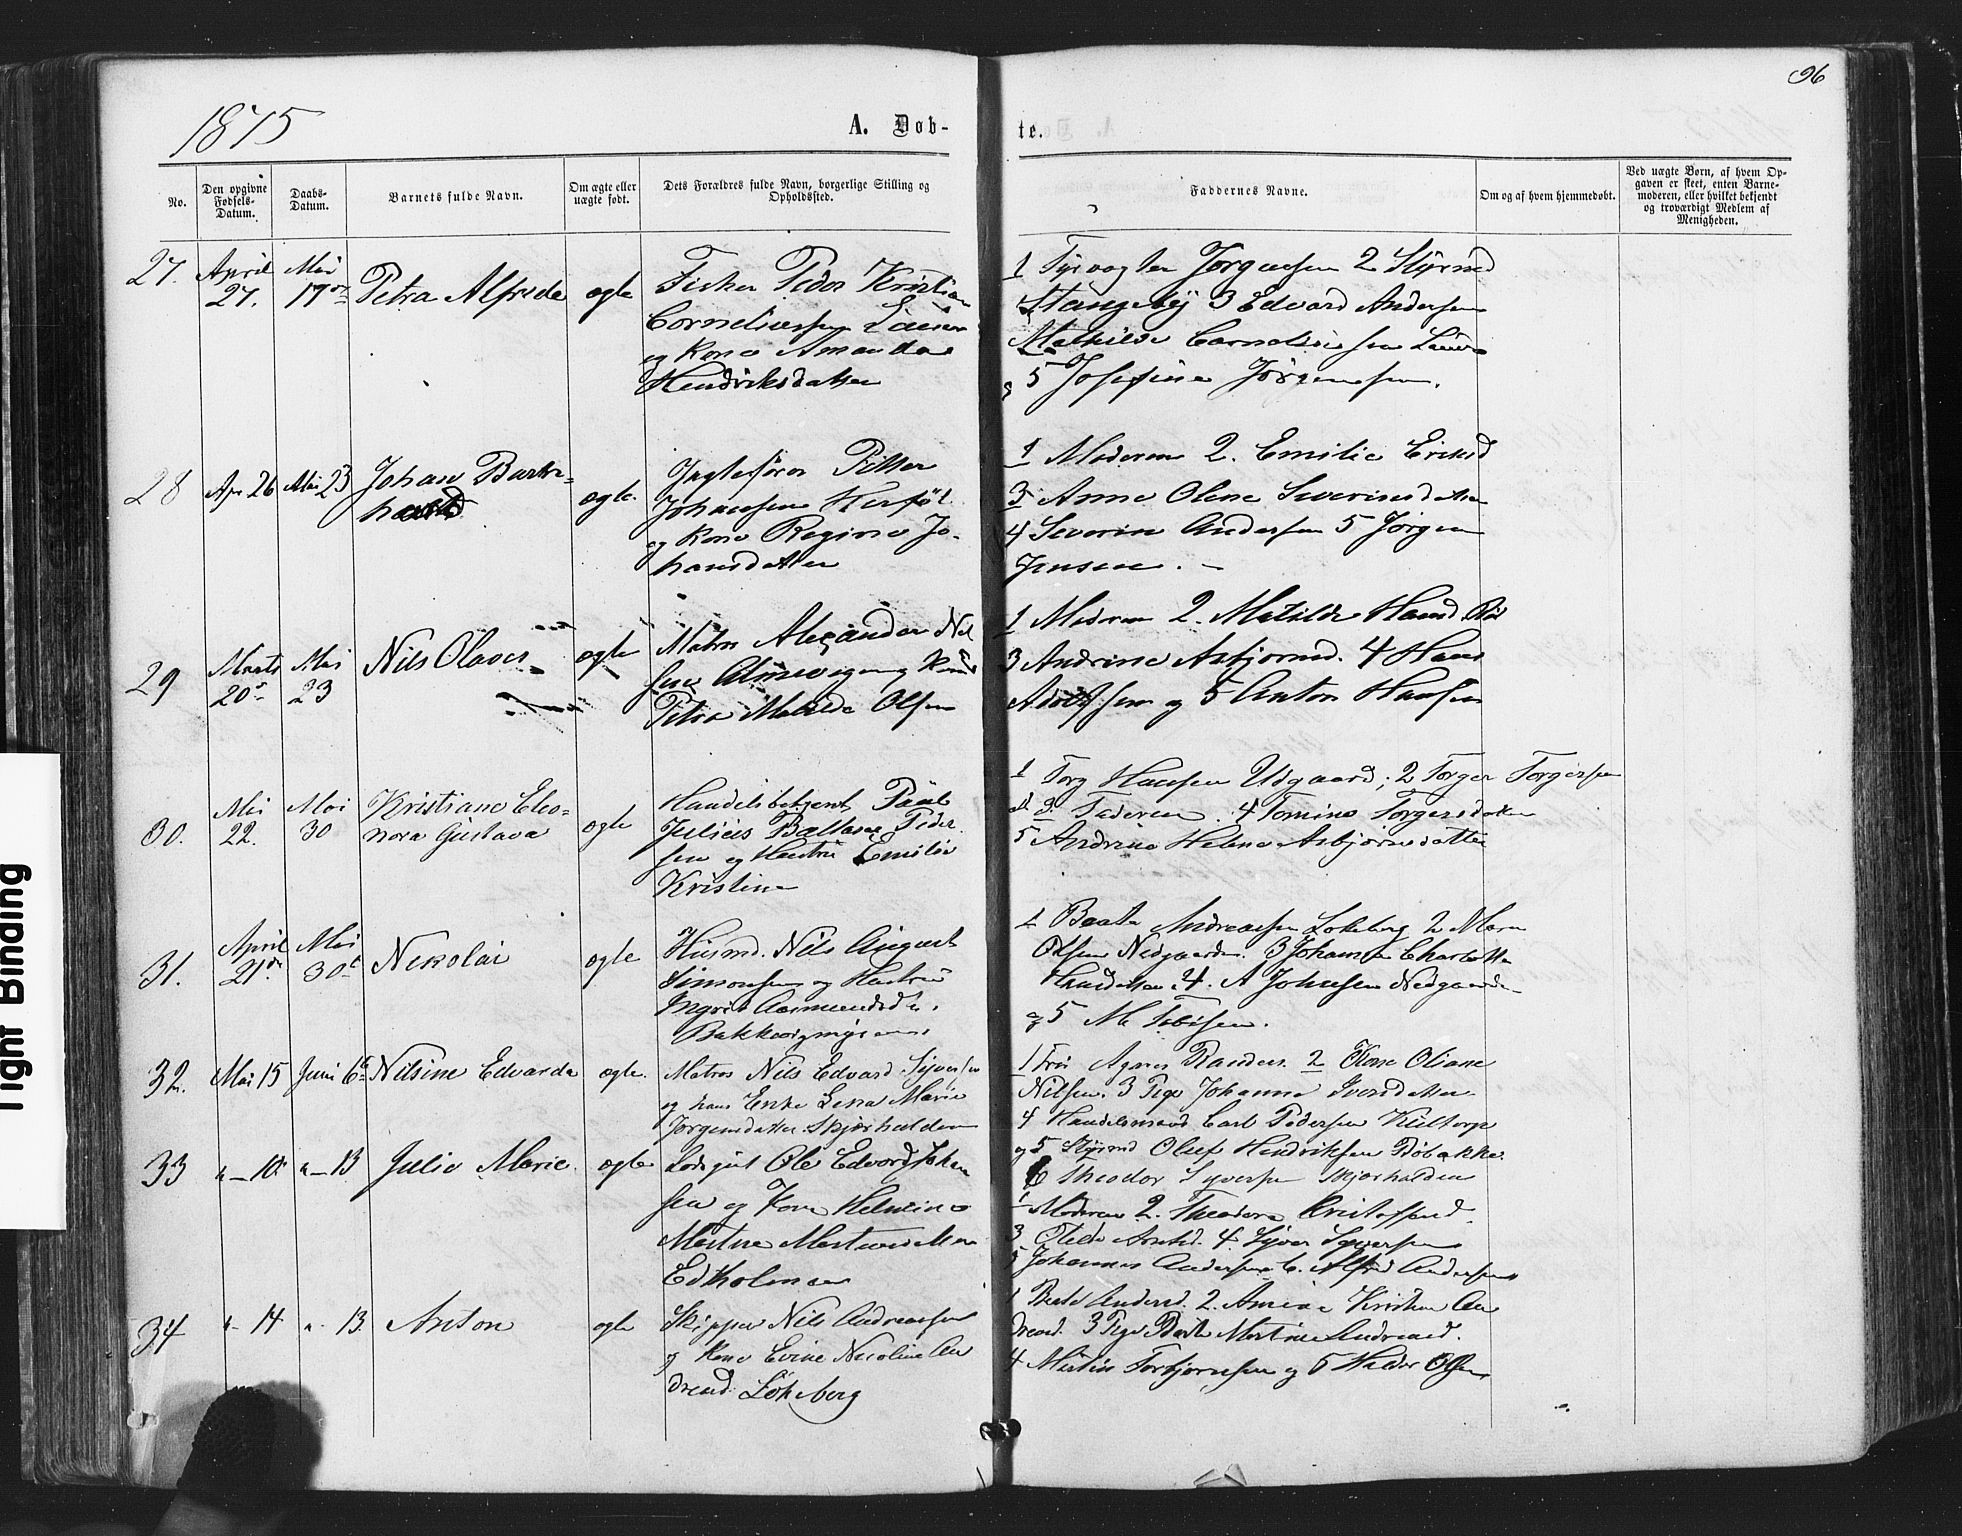 96
1875
A. Døb-
te.
No.
Den opgivne Fødsels-Datum.
Daabs-Datum.
Barnets fulde Navn.
Om ægte eller uægte født.
Dets Forældres fulde Navn, borgerlige Stilling og Opholdssted.
Faddernes Navne.
Om og af hvem hjemmedøbt.
Ved uægte Børn, af hvem Opgaven er skeet, enten Barnemoderen, eller hvilket bekjendt og troværdigt Medlem af Menigheden.
27. April 27. Mai 17 Petra Alfrede ægte
Fisker Peder Kristian
Corneliussen Lauer
og Kone Amanda
Hendriksdatter
1 Fyrvogter Jørgensen 2 Styrmd
Stangebÿ 3 Edvard Andersen
Mathilde Corneliussen Lauer
og 5 Josefine Jørgensen.
28 Apr 26 Mai 23 Johan Burk-
hard ægte.
Johansen Herføl
og Kone Regine Jo-
hansdatter
1 Moderen 2. Emilie Eriksd
3 Anne Olene Severinsdatter
4 Severin Andersen 5 Jørgen
Jensen.
29 Marts 20 Mai 23 Nils Olaves ægte
Matros Alexander Nil
sen og Kone
Petra Matilde Olsen
1 Moderen 2. Matilde Hansd.
3 Andrine Asbjørnsd. 4 Hans
Adolfsen og 5 Anton Hansen
30. Mai 22. Mai 30 Kristiane Eleo-
nora Gustava ægte
Handelsbetjent Paul
Julius Baltazar Peder
sen og Hustru Emilie
Kristine
1 Torg Hansen Udgaard; 2 Torger Torgersen
3 Faderen. 4 Tomine Torgersdatter
5 Andrine Helene Asbjørnsdatter
31. April 21 Mai 30 Nikolai ægte
Husmd. Nils August
Simonsen og Hustru
Ingrid Aasmundsd
1 Beate Andreassen Løkeberg 2 Maren
Olsen Nedgaarden 3 Johanne Charlotte
Hansdatter 4. A Johnsen Nedgaarden
og 5 M Tobisen.
32. Mai 15 Juni 6 Nilsine Edvarda ægte.
Matros Nils Edvard Syversen
og hans Enke Lena Marie
Jørgensdatter Skjærhalden
1 Fru Agnes Randers. 2 Kone Oliane
Nilsen. 3 Pige Johanne Iversdatter
4 Handelsmand Carl Pedersen
og 5 Styrmd Oluf Hendriksen Bøbakke
6 Theodor Syversen Skjærhalden
33 " 10 " 13 Julie Marie. ægte
Lodsgut Ole Edvard Johan
sen og Kone Helmine
Martine Martinsdatter
Edholmen
1 Moderen 2. Theodora Kristoffersd.
4. Syver Syversen
5 Johannes Andersen 6. Alfred Andersen
34 " 14 " 13. Anton ægte
Skipper Nils Andreassen
og Kone Evine Nicoline An
dreasd. Løkeberg
1 Beate Andersd. 2. Kristian An
dreasd. 3 Pige Berte Martine Andreasd.
4 Martin Torbjørnsen og 5 Olsen
Tight Binding